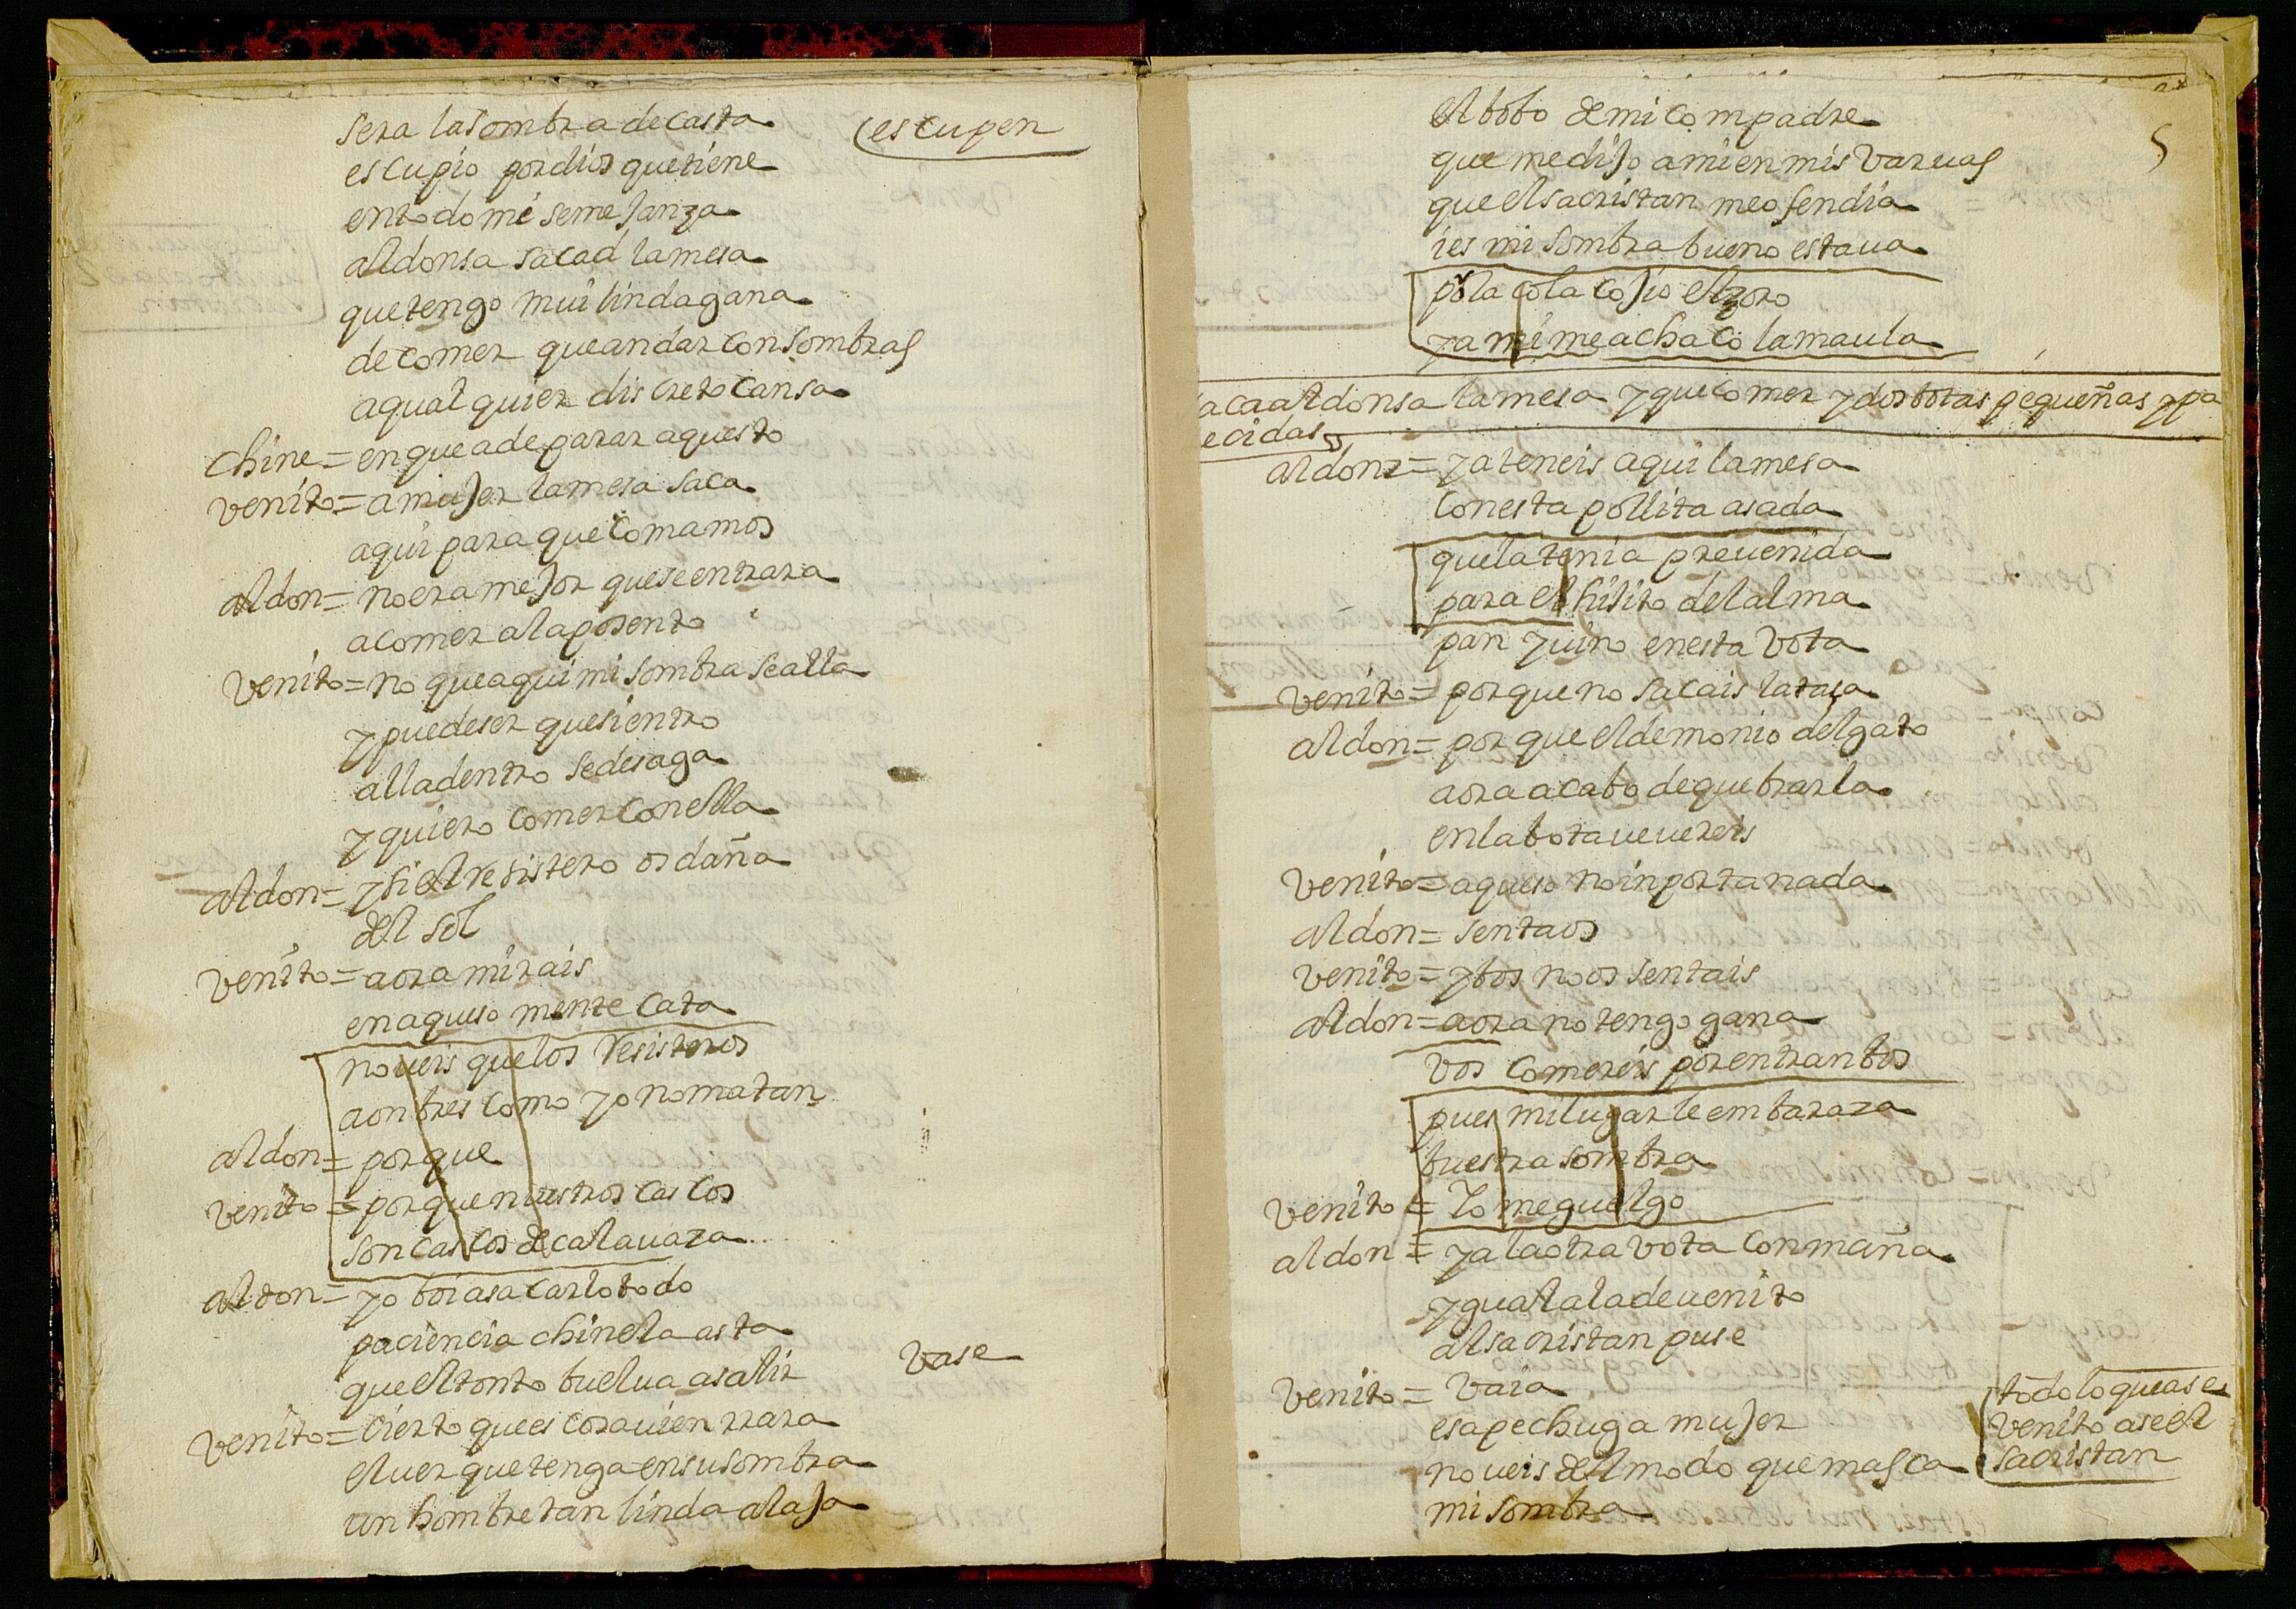 sera la sombra de casta
(escupen
escupio por dios que tiene
en todo mi semejanza
aldonsa sacad la mesa
que tengo mui linda gana
de comer que andar con sombras
a qual quier discreto cansa
chine = en que a de parar aquesto
venito = a mujer la mesa saca
aqui para que comamos
aldon = no era mejor que se entrara
a comer al aposento
venito = no que aqui mi sombra se alla
y puede ser que si entro
alla dentro se desaga
y quiero comer con ella
aldon = y si el resistero os daña
del sol
venito = aora mirais
en aqueso mentecata
no veis que los resisteros
a onbres como yo no matan
aldon = por que
venito = porque nuestros cascos
son cascos de calauaza
aldon = yo boi a sacarlo todo
paciencia chinela asta
que el tonto buelua a salir
vase
venito = cierto que es cosa uien rrara
el uer que tenga en su sombra
un hombre tan linda alaja
5
el bobo de mi compadre
que me dijo a mi en mis varuas
que el sacristan me ofendia
i es mi sombra bueno estaua
por la cola cojio el zoro
y a mi me achaco la maula
saca aldonsa la mesa y que comer y dos botas pequeñas y pa
ecidas
aldonz = ya teneis aqui la mesa
con esta pollita asada
que la tenia preuenida
para el hijito del alma
pan y uino en esta vota
venito = por que no sacais la tasa
aldon = por que el demonio del gato
aora acabo de quebrarla
en la bota ueuereis
venito = aqueso no inporta nada
aldon = sentaos
venito = y bos no os sentais
aldon = aora no tengo gana
vos comereis por entranbos
pues mi lugar le embaraza
buestra sombra
venito = yo me guelgo
aldon = ya la otra vota con maña
ygual a la de uenito
al sacristan puse
venito = vaia
esa pechuga mujer
no ueis del modo que masca
mi sombra
(todo lo que ase
venito ase el
sacristan